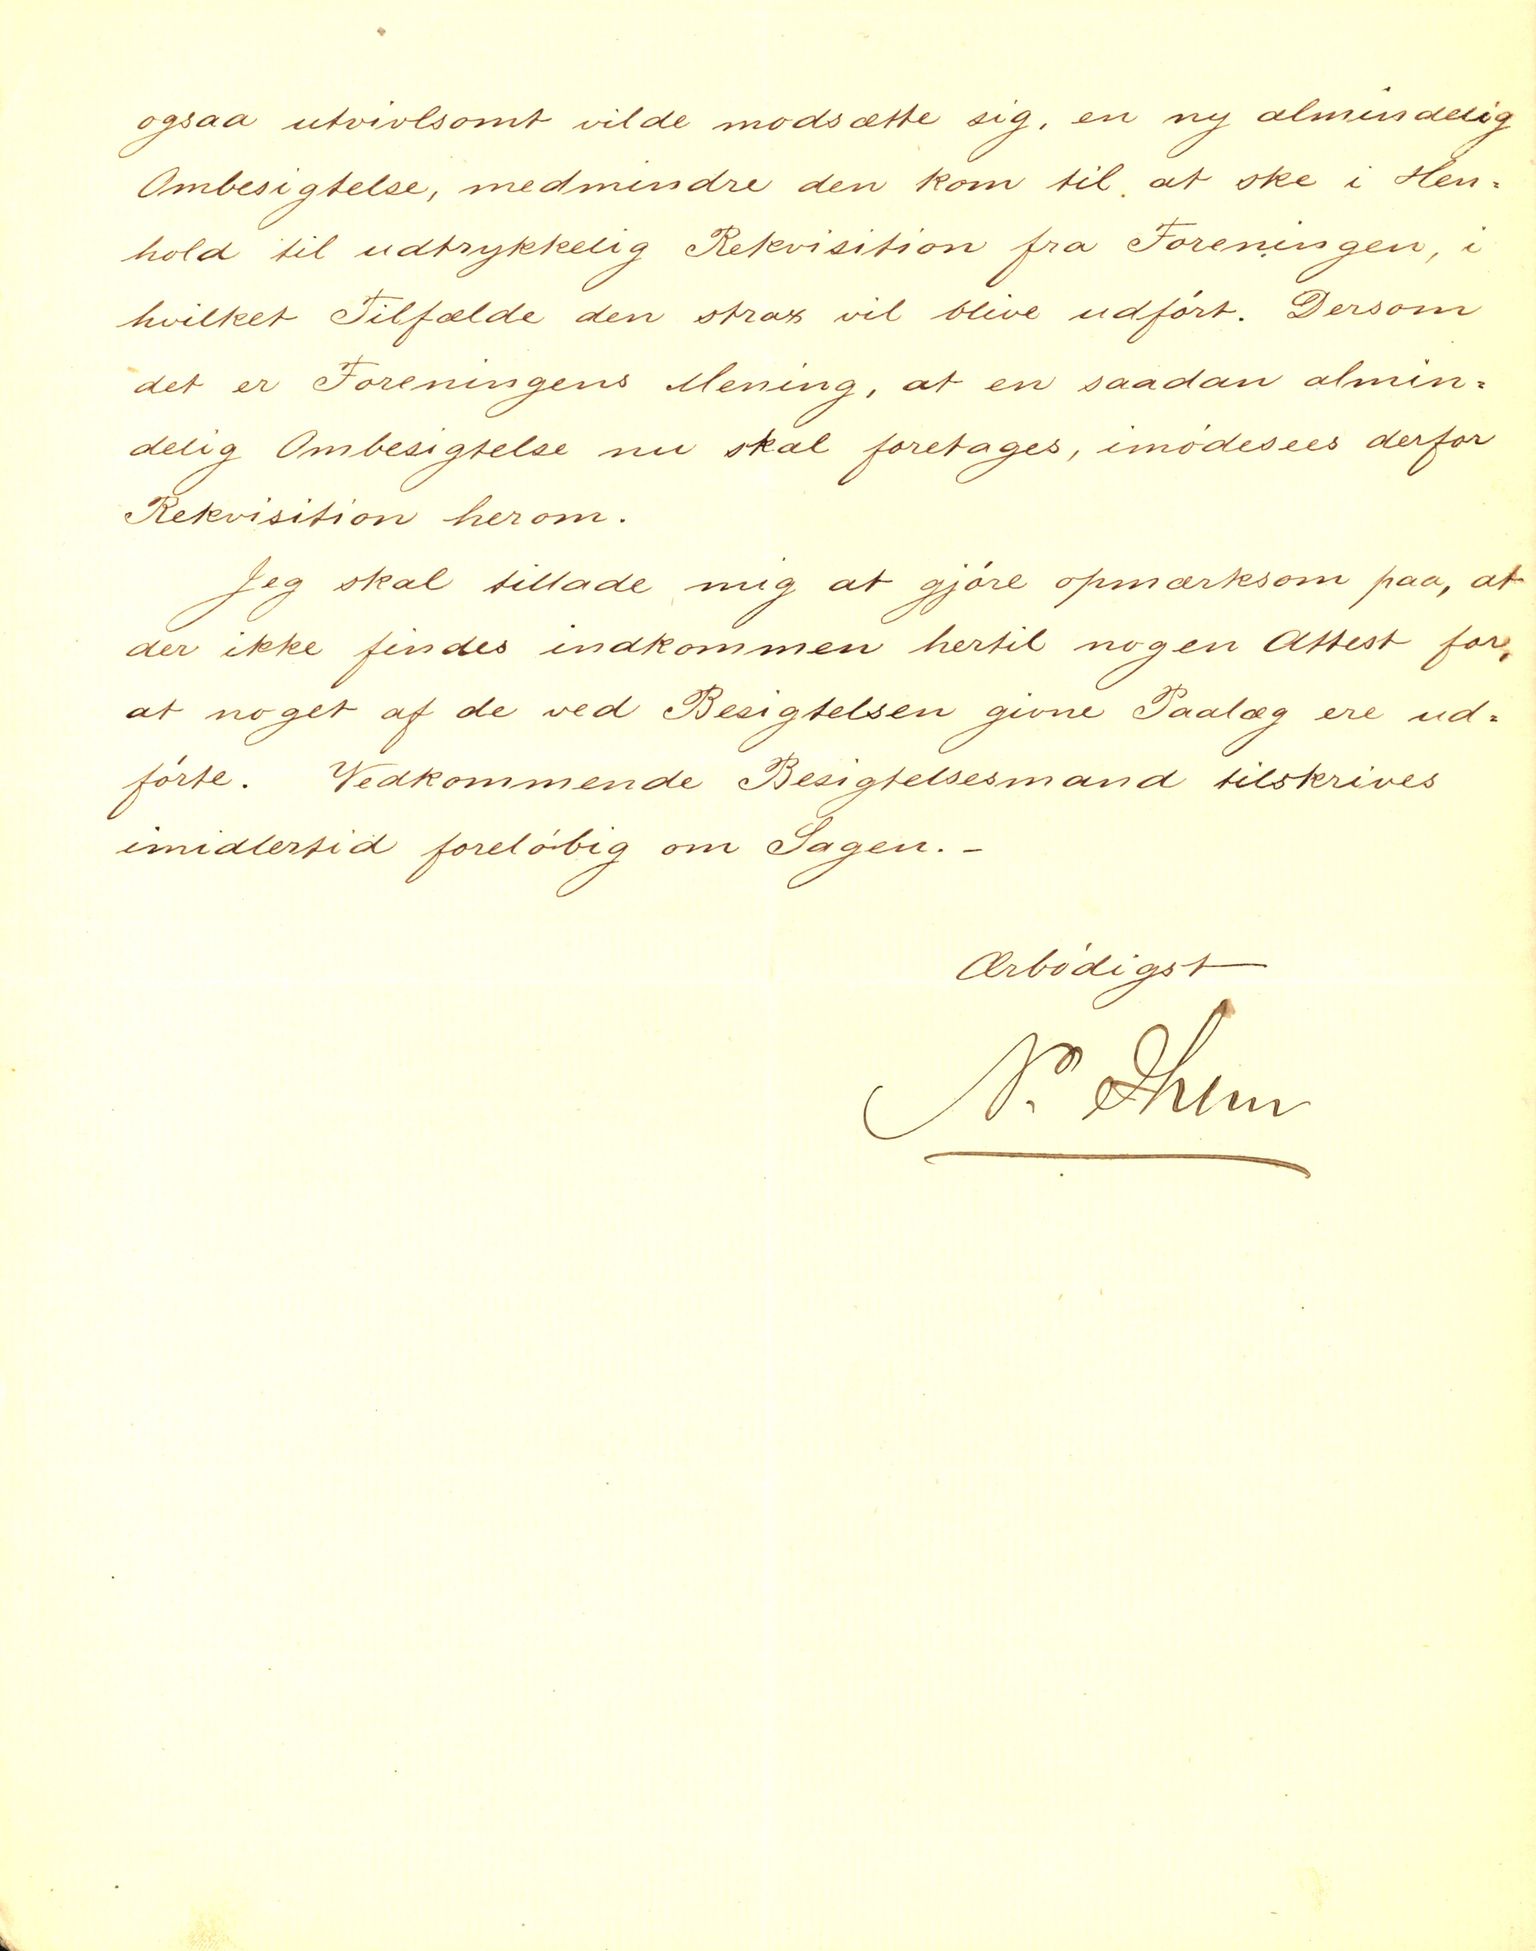 ogsaa utvivlsomt vilde modsætte sig, en ny almindelig
Ombesigtelse, medmindre den kom til at ske i Hen-
hold til udtrykkelig Rekvisition fra Foreningen, i
hvilket Tilfælde den strax vil blive udført. Dersom
det er Foreningens Mening, at en saadan almin-
delig Ombesigtelse nu skal foretages, imødesees derfor
Rekvisition herom.
Jeg skal tillade mig at gjøre opmærksom paa, at
der ikke findes indkommen hertil nogen Attest for,
at noget af de ved Besigtelsen givne Paalæg ere ud-
førte. Vedkommende Besigtelsesmand tilskrives
imidlertid foreløbig om Sagen. -
Ærbødigst
N. Ihlen